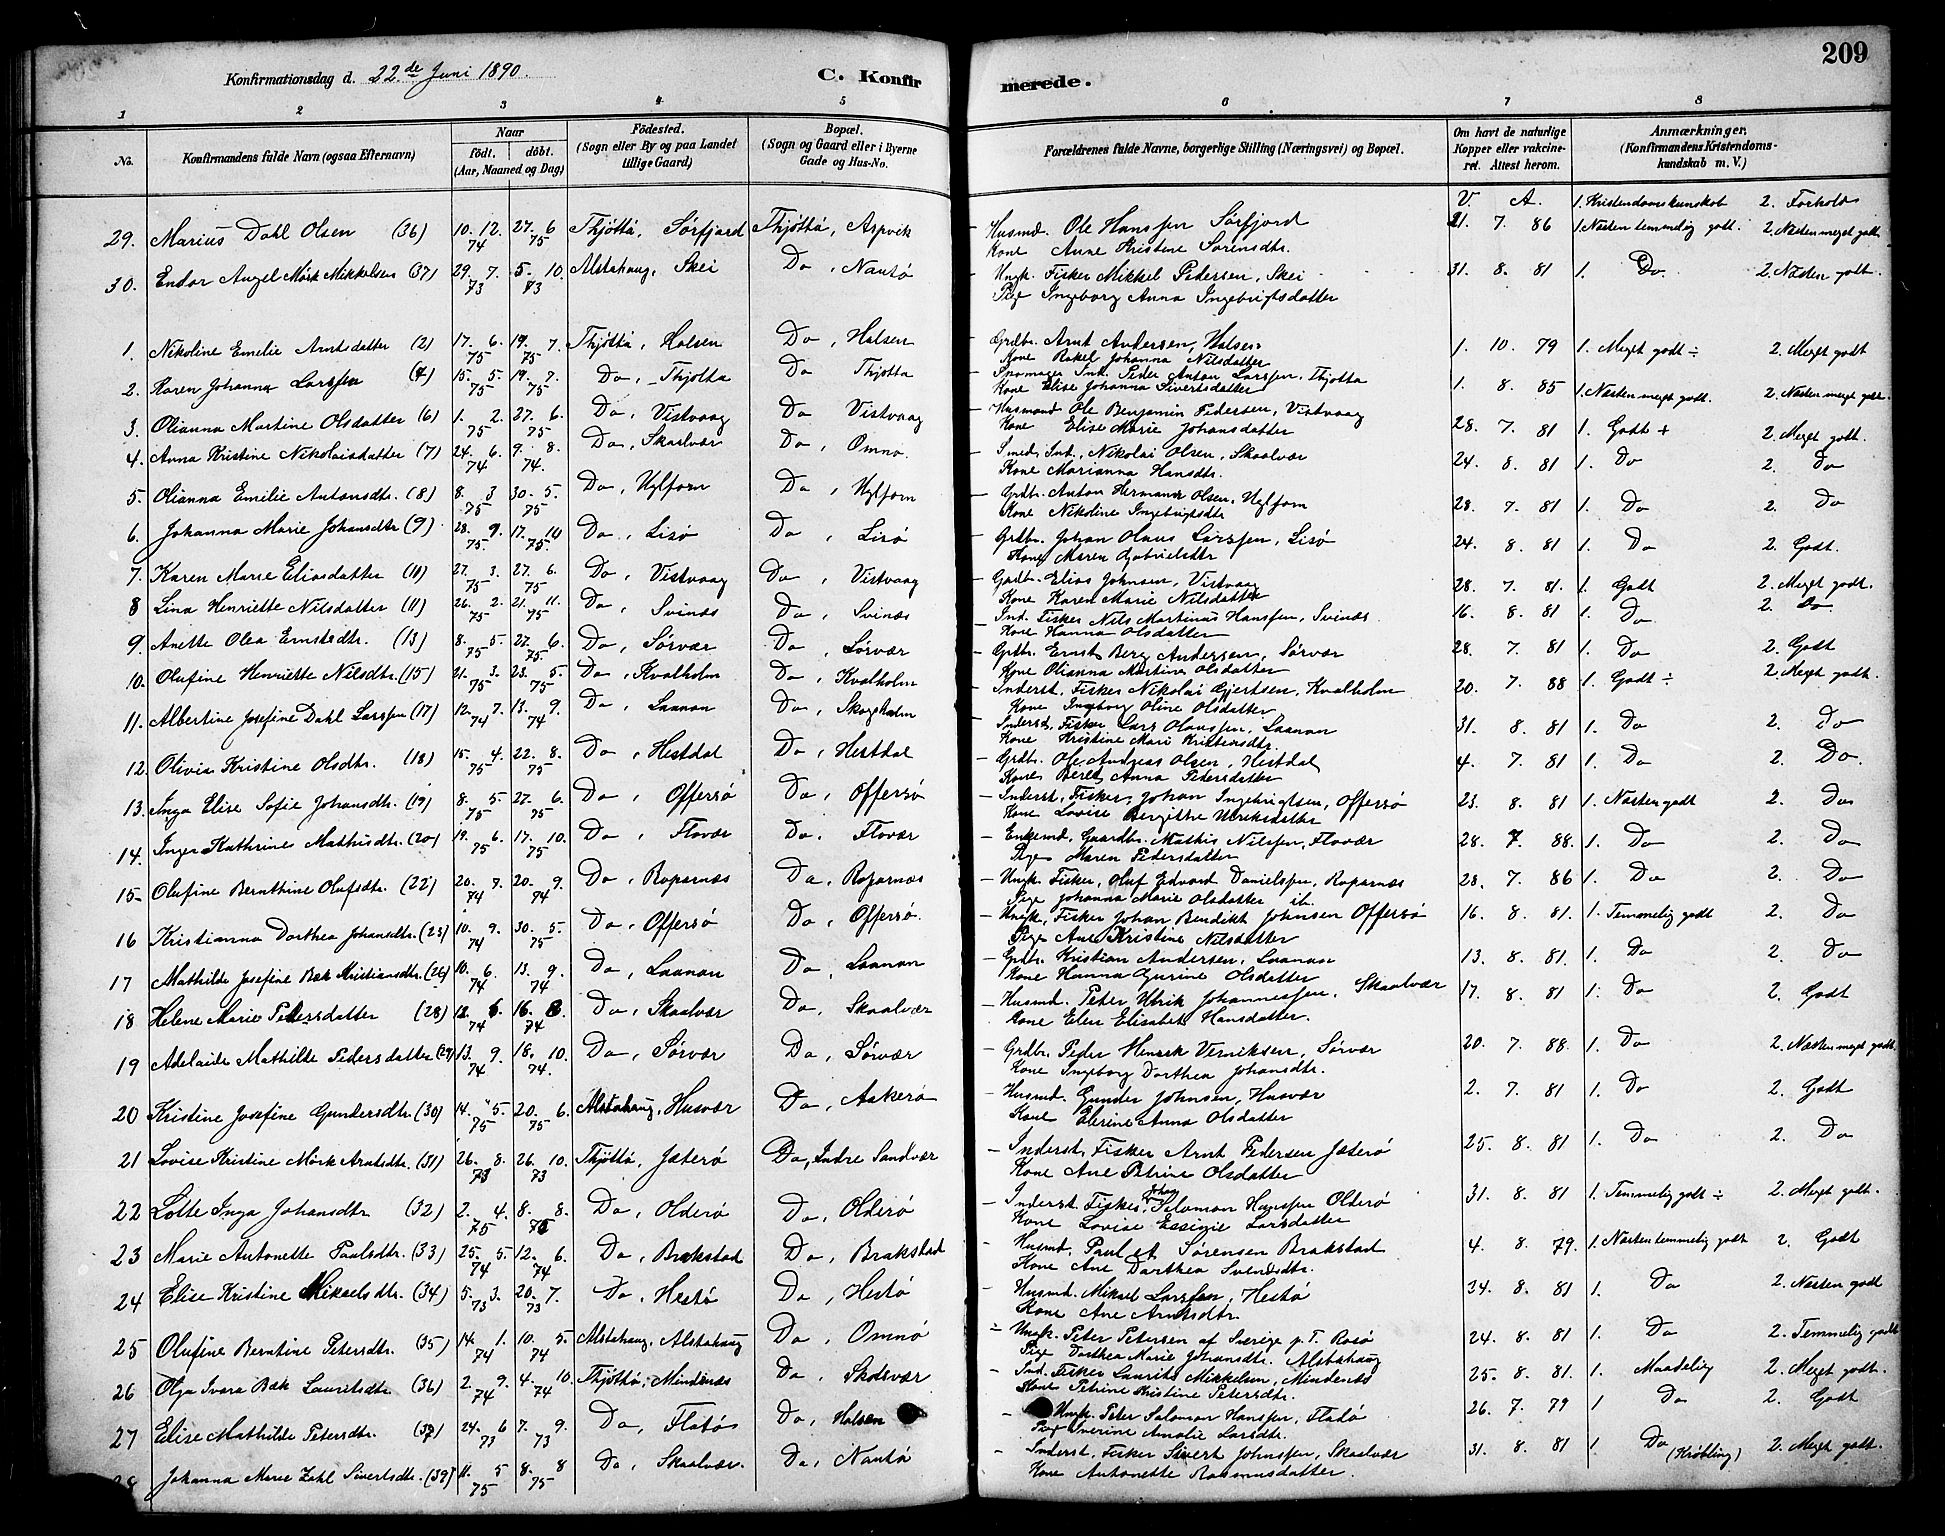 209
Konfirmationsdag d. 22de Juni 1890.
C. Konfirmerede.
1 2 3 4 5 6 7 8
No.
Konfirmandens fulde Navn (ogsaa Efternavn)
Naar
født. døbt.
(Aar, Maaned og Dag)
Födested.
(Sogn eller By og paa Landet tillige Gaard)
Bopæl.
(Sogn og Gaard eller i Byerne Gade og Hus-No.
Forældrenes fulde Navne, borgerlige Stilling (Næringsvei) og Bopæl.
Om havt de naturlige Kopper eller vakcineret. Attest herom.
Anmærkninger.
(Konfirmandens Kristendomskundskab m. V.)
V. A. 1. Kristendomskunskab 2. Forhold
29. Marius Dahl Olsen (36) 10. 12. 74 27. 6 75 Thjøttø, Sørfjord Thjøttø, Aspvik – Husmd. Ole Hanssen Sørfjord 21. 7. 86 1. Næsten temmelig godt. 2. Næsten meget godt
Kone Anne Kristine Sørensdtr.
30. Endor Angel Mørk Mikkelsen (37) 29. 7. 73 5. 10. 73 Alstahaug, Skei Do, Nautø – Ungk. Fisker Mikkel Pedersen, Skei 31. 8. 81 1. Do. 2. Næsten godt.
Pige Ingeborg Anna Ingebrigtsdatter
1. Nikoline Emelie Arntsdatter (2) 17. 6. 75 19. 7. 75 Thjøttø, Halsen Do, Halsen – Grdbr. Arnt Andersen, Halsen 1. 10. 79 1. Meget godt ÷ 2. Meget godt
Kone Rakel Johanna Nilsdatter
2. Karen Johanna Larssen (4) 15. 5. 75 19. 7. 75 Do, Thjøtta Do Thjøtta – Snømager Ind. Peder Anton Larssen, Thjøtta 1. 8. 85 1. Næsten meget godt. 2. Næsten meget godt.
Kone Elise Johanna Sivertsdatter
3. Olianna Martine Olsdatter (6) 1. 2. 75 27. 6. 75 Do, Vistvaag Do Vistvaag – Husmand Ole Benjamin Pedersen, Vistvaag 28. 7. 81 1. Godt + 2. Meget godt.
Kone Elise Marie Johansdatter
4. Anna Kristine Nikolaisdatter (7) 24. 6. 74 9. 8. 74. Do, Skaalvær Do, Omnø. – Smed, Ind. Nikolai Olsen, Skaalvær 24. 8. 81 1. Do 2. Do
Kone Marianna Hansdtr.
5. Olianna Emilie Antonsdtr. (8) 8. 3 75 30. 5. 75 Do, Uglforn Do, Uglforn – Grdbr. Anton Hermann Olsen, Uglforn 28. 7. 81 1. Do 2. Do
Kone Nikoline Ingebrigtsdtr
6. Johanna Marie Johansdtr (9) 28. 9. 75. 17. 10 75. Do, Lisø Do, Lisø – Grdbr. Johan Olaus Larssen, Lisø 24. 8. 81 1. Do 2. Godt.
Kone Maren Gabrielsdtr
7. Karen Marie Eliasdatter (11) 27. 3. 75 27. 6. 75 Do, Vistvaag Do, Vistvaag – Grdbr. Elias Johnsen, Vistvaag 28. 7. 81. 1. Godt 2. Meget godt.
Kone Karen Marie Nilsdatter
8 Lina Henriette Nilsdatter (11) 26. 2. 75 21. 11. 75 Do, Svinæs Do, Svinæs – Ind. Fisker Nils Martinus Hanssen, Svinæs. 16. 8. 81 1. Do 2. Do.
Kone Hanna Olsdatter
9. Anette Olea Ernstsdtr. (13) 8. 5. 75 27. 6. 75. Do, Sørvær Do, Sørvær – Grdbr. Ernst Berg Andersen, Sørvær 28. 7. 81 1. Do 2. Godt
Kone Olianna Martina Olsdatter
10. Olufine Henriette Nilsdtr. (15) 21. 3. 75 23. 5. 75 Do, Kvalholm Do, Kvalholm – Inderst, Fisker Nikolai Gjertsen, Kvalholm 20. 7. 88 1. Godt ÷ 2. Meget godt.
Kone Ingeborg Oline Olsdatter
11. Albertine Josefine Dahl Larssen (17) 12. 7. 74 13. 9. 74 Do, Laanan Do, Skogsholm – Inderst, Fisker Lars Olaussen, Laanan 31. 8. 81 1. Do 2. Do
Kone Kristine Mari Kristensdtr.
12. Olivia Kristine Olsdtr. (18) 15. 4. 75 22. 8. 75 Do, Hestdal Do, Hestdal – Grdbr. Ole Andreas Olsen, Hestdal 4. 7. 81 1. Do 2. Do.
Kone Beret Anna Petersdatter
13. Inga Elise Sofie Johansdtr. (19) 8. 5. 75 27. 6. 75. Do, Offersø Do, Offersø – Inderst, Fisker, Johan Ingebrigtsen, Offersø 23. 8. 81 1. Næsten godt 2. Do
Kone Lovise Bergithe Ulriksdatter
14. Inger Kathrine Mathisdtr. (20) 19. 6. 75 17. 10. 75 Do, Flovær Do, Flovær – Enkemd. Gaardbr. Mathis Nilssen, Flovær 28. 7. 88. 1. Do 2. Do
Pige Maren Pedersdatter
15. Olufine Bernthine Olufsdtr. (22) 20. 7. 74 20. 9. 74 Do, Roparnæs Do, Roparnæs – Ungk. Fisker, Oluf Edvard Danielssen, Roparnæs 28. 7. 86 1. Do 2. Do
Pige Johanna Marie Olsdatter ib.
16 Kristianna Dorthea Johansdtr. (23) 10. 9. 74 30. 5. 75 Do, Offersø Do, Offersø. – Ungk, Fisker Johan Bendikt Johnsen Offersø 16. 8. 81. 1. Temmelig godt 2. Do
Pige Ane Kristine Nilsdatter
17 Mathilde Josefine Bak Kristiansdtr. (26) 10. 6. 74 13. 9. 74 Do, Laanan Do, Laanan – Grdbr. Kristian Andersen, Laanan 13. 8. 81. 1. Do 2. Do
Kone Hanna Gurine Olsdatter
18 Helene Marie Petersdatter (28) 12. 6. 74 16. 8. 74 Do, Skaalvær Do, Skaalvær – Husmd. Peter Ulrik Johannessen, Skaalvær 17. 8. 81 1. Do 2. Godt
Kone Elen Elisabet Hansdatter.
19 Adelaide Mathilde Pedersdatter (29) 13. 9. 74 18. 10. 74. Do, Sørvær Do, Sørvær – Grdbr. Peder Henrik Verniksen, Sørvær 20. 7. 88. 1. Do 2. Næsten meget godt.
Kone Ingeborg Dorthea Johansdtr.
20 Kristine Josefine Gundersdtr. (30) 14. 5. 75 20. 6. 75 Alstahaug, Husvær Do, Aakerø – Husmd. Gunder Johnsen, Husvær 2. 7. 81 1. Do 2. Godt
Kone Elerine Anna Olsdatter
21 Lovise Kristine Mørk Arntsdtr. (31) 26. 8. 73 26. 10. 73 Thjøttø, Jæterø Do, Indre Sandvær – Inderst. Fisker Arnt Pedersen Jæterø 25. 8. 81 1. Do 2. Do
Kone Ane Petrine Olsdatter
22 Lotte Inga Johansdtr (32) 2. 4. 75 8. 8. Do, Olderø Do, Olderø – Inderst. Fisker, Johan Salomon Hanssen Olderø 31. 8. 81 1. Temmelig godt ÷ 2. Meget godt.
Kone Lovise Larsdatter
23 Marie Antonette Paulsdtr. (33) 25. 5 74 12. 6. 74 Do, Brakstad Do, Brakstad – Husmd. Paul Sørensen Brakstad 4. 8. 79. 1. Næsten temmelig godt 2. Godt
Kone Ane Darthea Svendsdtr.
24 Elise Kristine Mikaelsdtr. (34) 5. 3. 73 20. 7. 73 Do, Hestø Do, Hestø – Husmd. Mikael Larssen, Hestø 24. 8. 81 1. Do 2. Næsten godt
Kone Ane Arntsdtr.
25 Olufine Berntine Petersdtr. (35) 14. 1. 74 10. 5. 74 Alstahaug, Alstahaug Do, Omnø ÷ Ungk. Peter Petersen af Sverige p. T. Rosø 24. 8. 81 1. Do 2. Temmelig godt
Pige Dorthea Marie Johansdtr. Alstahaug
26 Olga Ivara Bak Lauritsdtr (36) 2. 9. 74 4. 10. 74 Thjøttø, Mindenæs Do, Skotsvær – Ind. Fisker Laurits Mikkelsen, Mindenæs 25. 8. 81. 1. Maadelig 2. Meget godt.
Kone Petrine Kristine Petersdtr.
27 Elise Mathilde Petersdtr. (37) 24. 6 73 7. 9. 73 Do, Flatøs Do, Halsen – Ungk. Peter Salomon Hanssen, Flatø 26. 7. 79 1 Do 2. Godt
Pige Iverine Amalie Larsdtr.
28 Johanna Marie Zahl Sivertsdtr. (39) 11. 5 75 8. 8 75 Do, Skaalvær. Do, Nautø – Inderst. Fisker Sivert Johnssen, Skaalvær 31. 8. 81 1. Do (Krøbling) 2. Meget godt.
Kone Antonette Rasmusdatter.